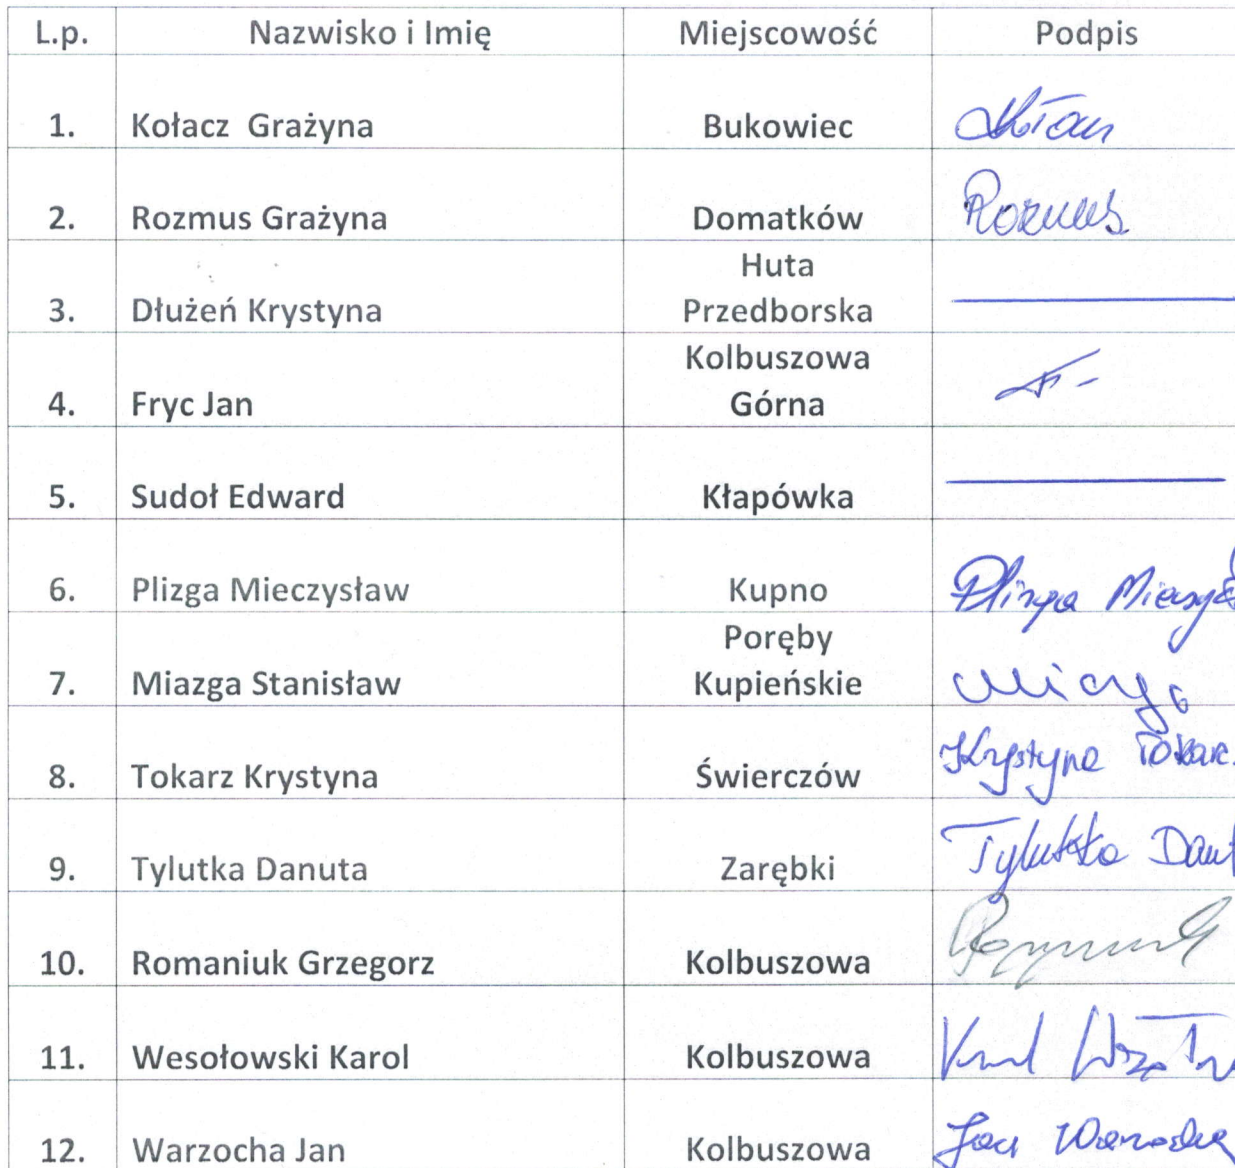 L.p. Nazwisko i Imię Miejscowość Podpis
1. Kołacz Grażyna Bukowiec
2. Rozmus Grażyna Domatków Rozmus
Huta
3. Dłużeń Krystyna Przedborska
Kolbuszowa
4. Fryc Jan Górna
5. Sudoł Edward Kłapówka
6. Plizga Mieczysław Kupno Plizga
Poręby
7. Miazga Stanisław Kupieńskie
8. Tokarz Krystyna Świerczów Krystyna Tokarz
9. Tylutka Danuta Zarębki Tylutka Danut
10. Romaniuk Grzegorz Kolbuszowa
11. Wesołowski Karol Kolbuszowa
12. Warzocha Jan Kolbuszowa Jan